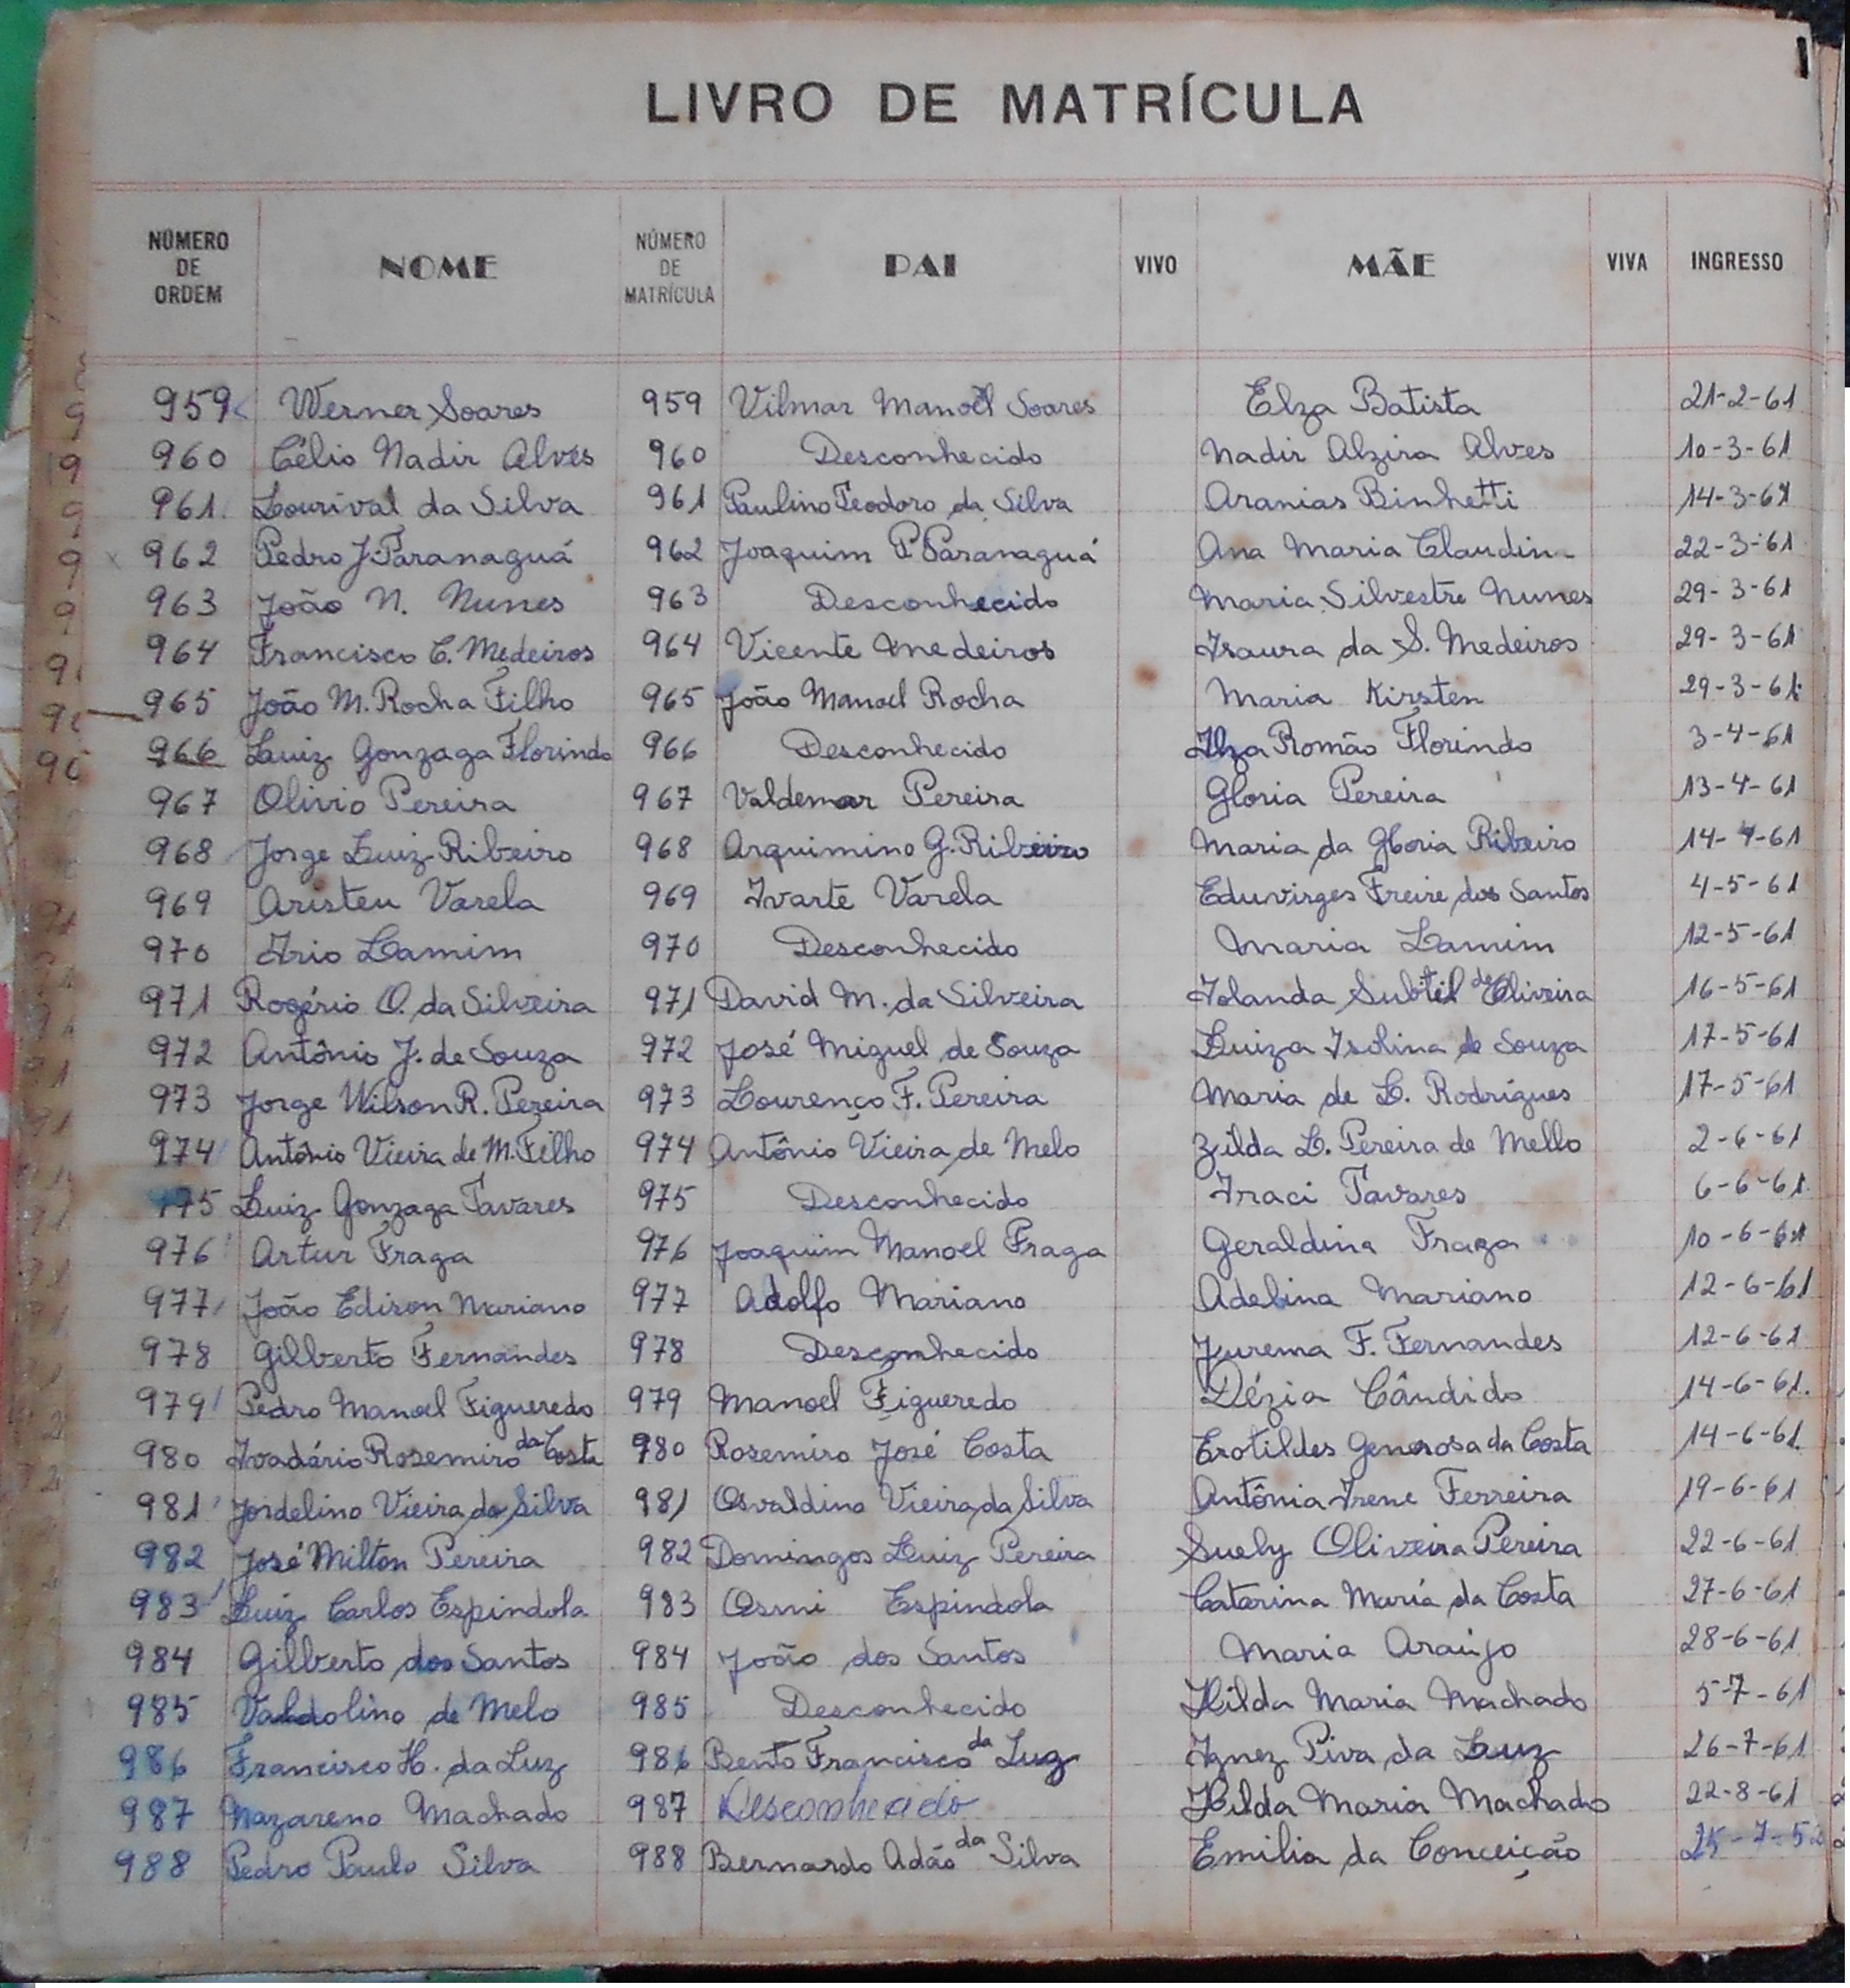 LIVRO DE MATRÍCULA
NÚMERO DE ORDEM NOME NÚMERO DE MATRÍCULA PAI VIVO MÃE VIVA INGRESSO
959 Werner Soares 959 Vilmar Manoel Soares Elza Batista 21-2-61
960 Célio Nadir Alves 960 Desconhecido Nadir Alzira Alves 10-3-61
961 Lourival da Silva 961 Paulino Teodoro da Silva Aranias Binhetti 14-3-61
962 Pedro J. Paranaguá 962 Joaquim P. Paranaguá Ana Maria Claudin 22-3-61
963 João N. Nunes 963 Desconhecido Maria Silvestre Nunes 29-3-61
964 Francisco C. Medeiros 964 Vicente Medeiros Isaura da S. Medeiros 29-3-61
965 João M. Rocha Filho 965 João Manoel Rocha Maria Kirsten 29-3-61
966 Luiz Gonzaga Florindo 966 Desconhecido Ilza Romão Florindo 3-4-61
967 Olivio Pereira 967 Valdemar Pereira Gloria Pereira 13-4-61
968 Jorge Luiz Ribeiro 968 Arquimino G. Ribeiro Maria da Gloria Ribeiro 14-4-61
969 Aristeu Varela 969 Ivarte Varela Eduvirges Freire dos Santos 4-5-61
970 Irio Lamim 970 Desconhecido Maria Lamim 12-5-61
971 Rogério O. da Silveira 971 David M. da Silveira Iolanda Subtil de Oliveira 16-5-61
972 Antônio J. de Souza 972 José Miguel de Souza Luiza Isolina de Souza 17-5-61
973 Jorge Wilson R. Pereira 973 Lourenço F. Pereira Maria de L. Rodrigues 17-5-61
974 Antônio Vieira de M. Filho 974 Antônio Vieira de Melo Zilda L. Pereira de Mello 2-6-61
975 Luiz Gonzaga Tavares 975 Desconhecido Iraci Tavares 6-6-61
976 Artur Fraga 976 Joaquim Manoel Fraga Geraldina Fraga 10-6-61
977 João Edison Mariano 977 Adolfo Mariano Adelina Mariano 12-6-61
978 Gilberto Fernandes 978 Desconhecido Jurema F. Fernandes 12-6-61
979 Pedro Manoel Figueredo 979 Manoel Figueredo Dézia Cândido 14-6-61
980 Ivadário Rosemiro da Costa 980 Rosemiro José Costa Erotildes Generosa da Costa 14-6-61
981 Jordelino Vieira da Silva 981 Osvaldino Vieira da Silva Antônia Irene Ferreira 19-6-61
982 José Milton Pereira 982 Domingos Luiz Pereira Suely Oliveira Pereira 22-6-61
983 Luiz Carlos Espindola 983 Osmi Espindola Catarina Maria da Costa 27-6-61
984 Gilberto dos Santos 984 João dos Santos Maria Araújo 28-6-61
985 Valdolino de Melo 985 Desconhecido Hilda Maria Machado 5-7-61
986 Francisco H. da Luz 986 Bento Francisco da Luz Ignez Piva da Luz 26-7-61
987 Nazareno Machado 987 Desconhecido Hilda Maria Machado 22-8-61
988 Pedro Paulo Silva 988 Bernardo Adão da Silva Emilia da Conceição